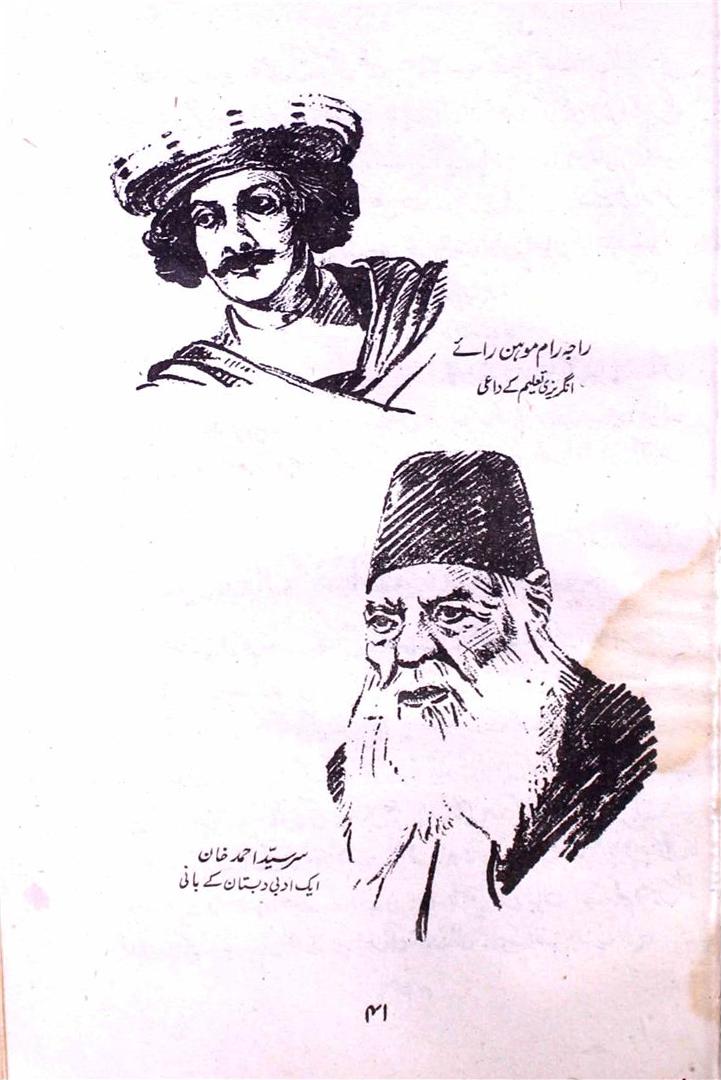 راجہ رام موہن رائے
انگریزی تعلیم کے داعی
سر سیّد احمد خان
ایک ادبی دبستان کے بانی
۴۱